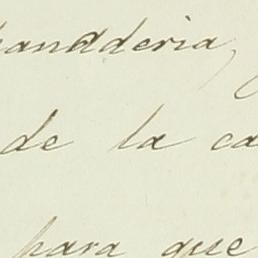 panadderia,
de la ca
para que